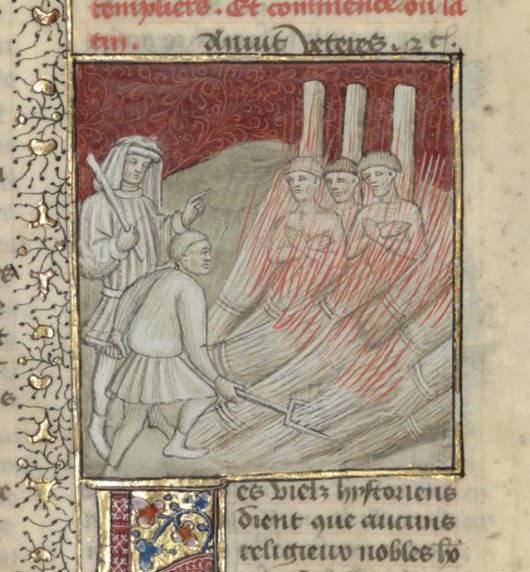 templiers. Et commence ou la
tin. Anuit veteres. &c.
es vielz hystoriens
dient que aucuns
religieux nobles ho